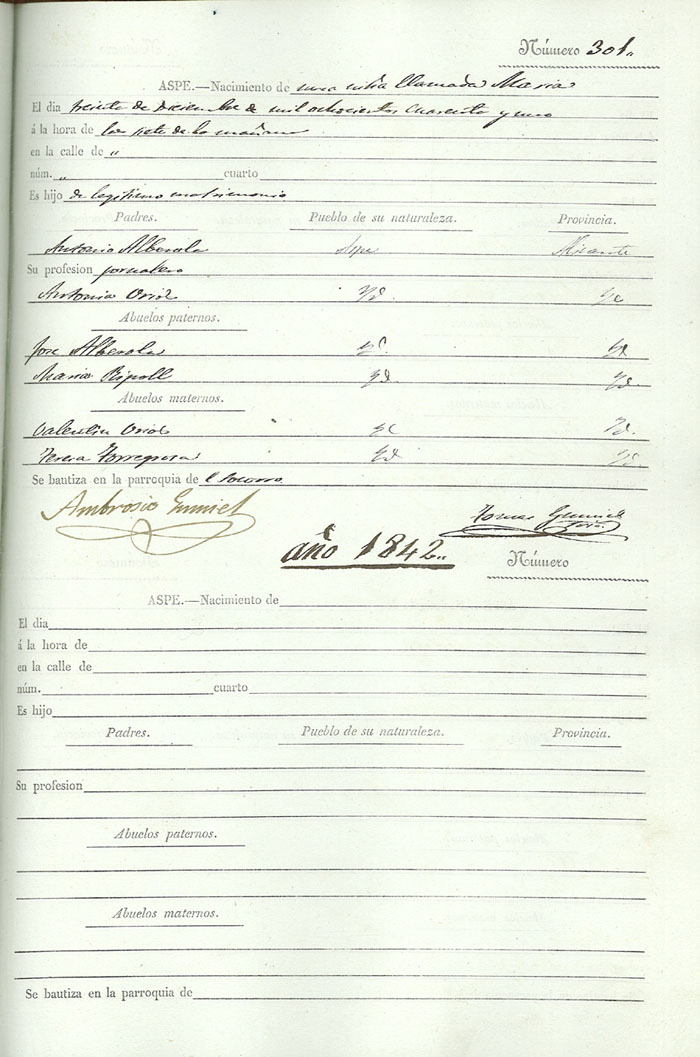 Número 301.,
ASPE.—Nacimiento de una niña llamada Maria
El dia treinta de Diciembre de mil ochocientos cuarenta y uno
á la hora de las siete de la mañana
en la calle de "
núm. " cuarto
Es hijo de legitimo matrimonio
Padres. Pueblo de su naturaleza. Provincia.
Antonio Alberola Aspe Alicante
Su profesion jornalero
Antonia Oriol Yd. Yd
Abuelos paternos.
Jose Alberola Yd. Yd
Maria Ripoll Yd. Yd
Abuelos maternos.
Valentin Oriol Yd Yd.
Teresa Torregrosa Yd Yd.
Se bautiza en la parroquia de el Socorro
Ambrosio Gumiel Tomas Gumiel
año 1842.,
Número
ASPE.—Nacimiento de
El dia
á la hora de
en la calle de
núm. cuarto
Es hijo
Padres. Pueblo de su naturaleza. Provincia.
Su profesion
Abuelos paternos.
Abuelos maternos.
Se bautiza en la parroquia de